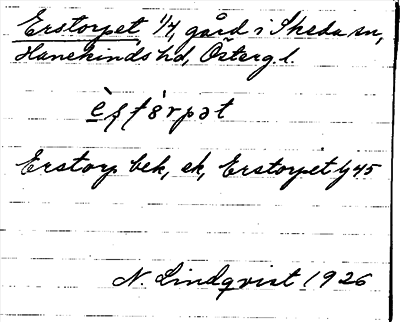 Erstorpet 1/4, gård i Skeda sn,
Hanekinds hd, Österg.l.
Erstorp bek, ek, Erstorpet lj 45
N. Lindqvist 1926